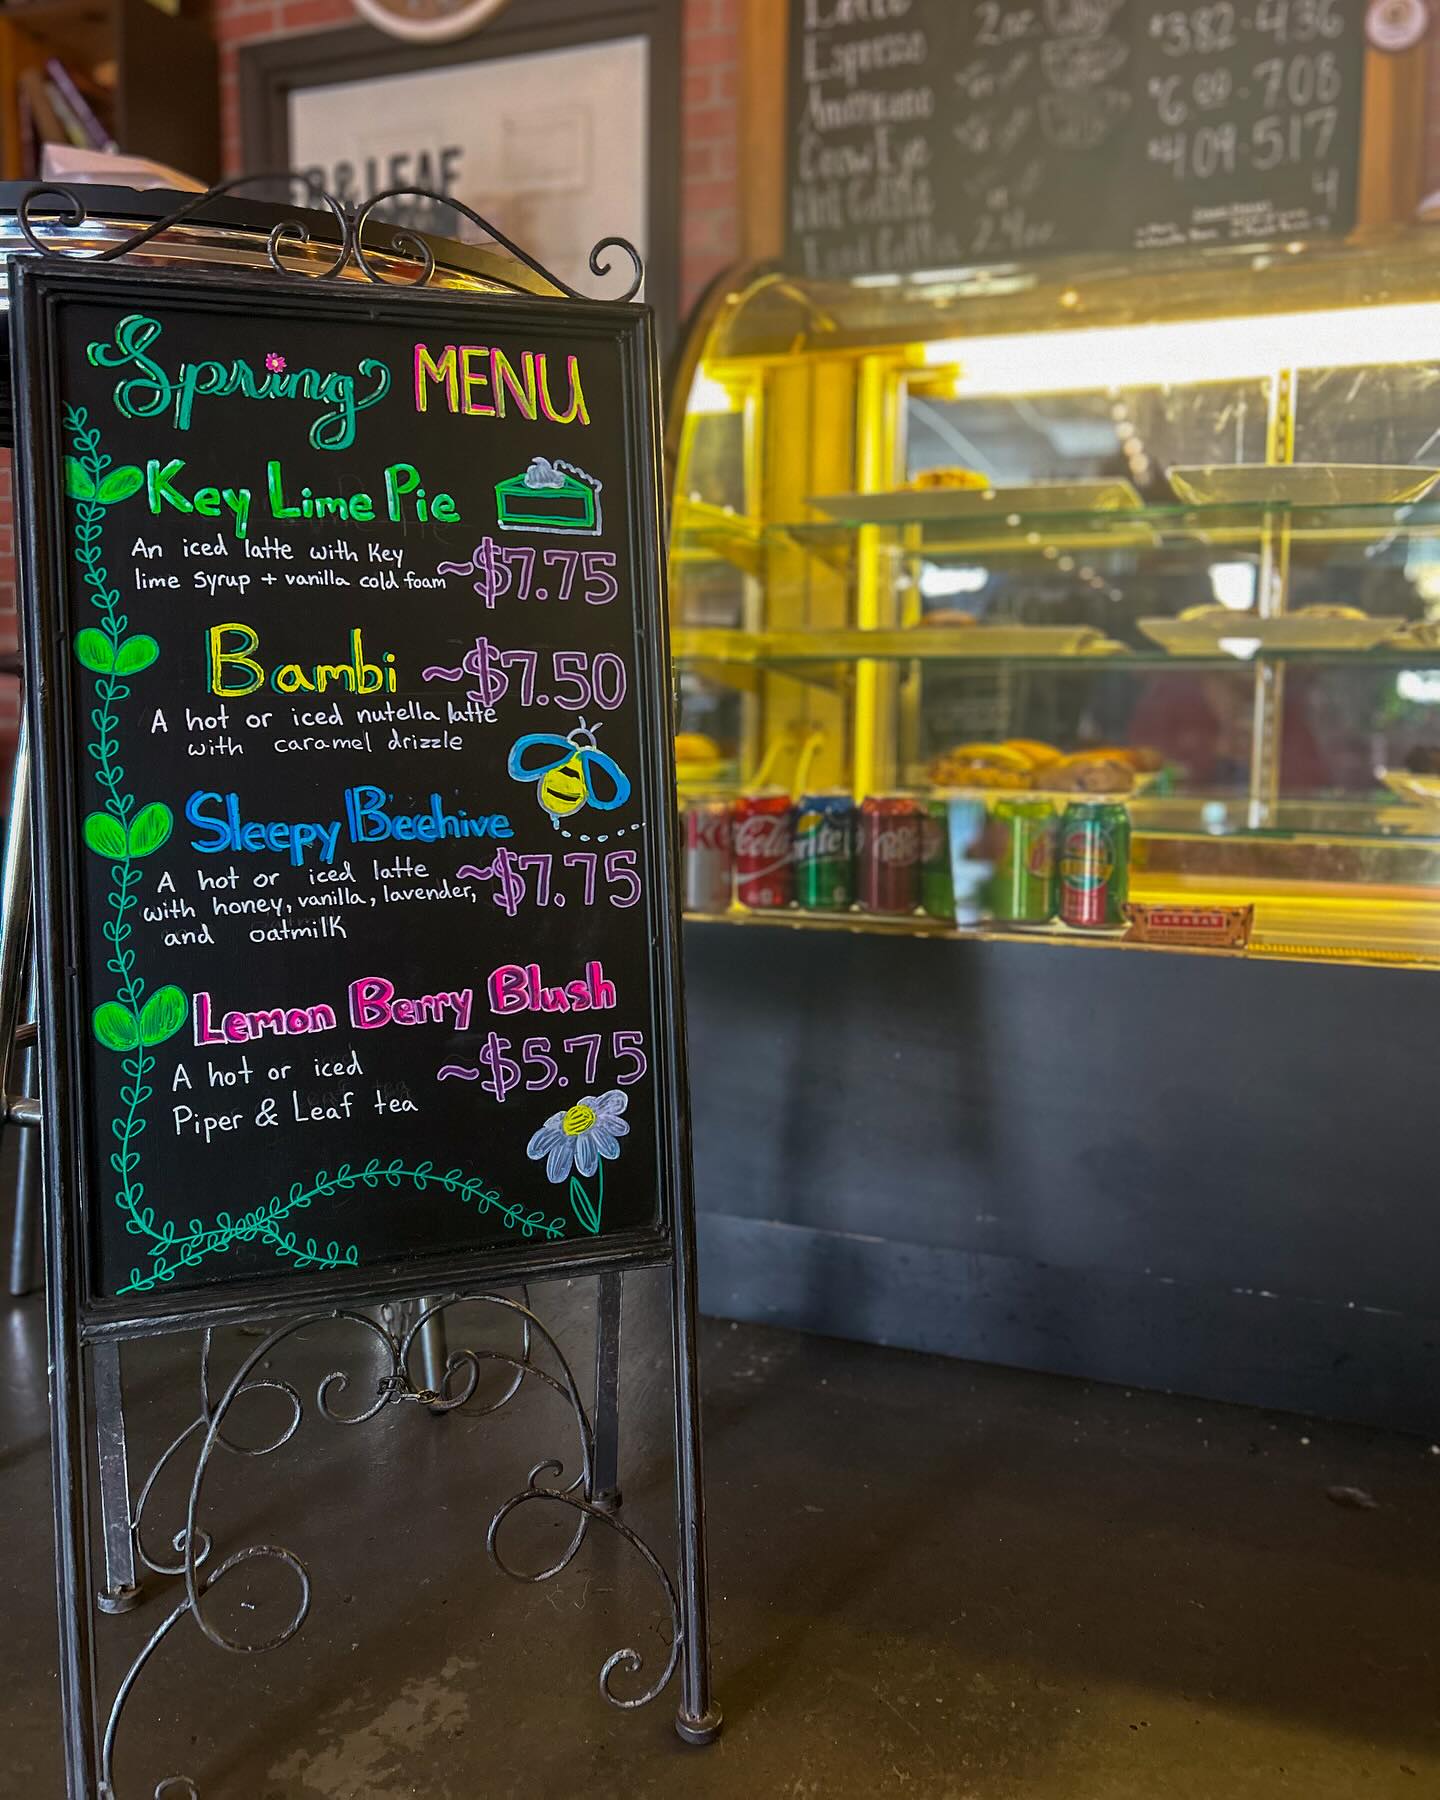 Latte
Espresso
Americano
2oz.
$3.82-4.36
$6.00-7.08
$4.09-5.17
4
& LEAF
Spring MENU
Key Lime Pie
An iced latte with Key
lime syrup + vanilla cold foam ~$7.75
Bambi ~$7.50
A hot or iced nutella latte
with caramel drizzle
Sleepy Beehive
A hot or iced latte ~$7.75
with honey, vanilla, lavender,
and oatmilk
Lemon Berry Blush
A hot or iced ~$5.75
Piper & Leaf tea
Coca-Cola
LÄRABAR